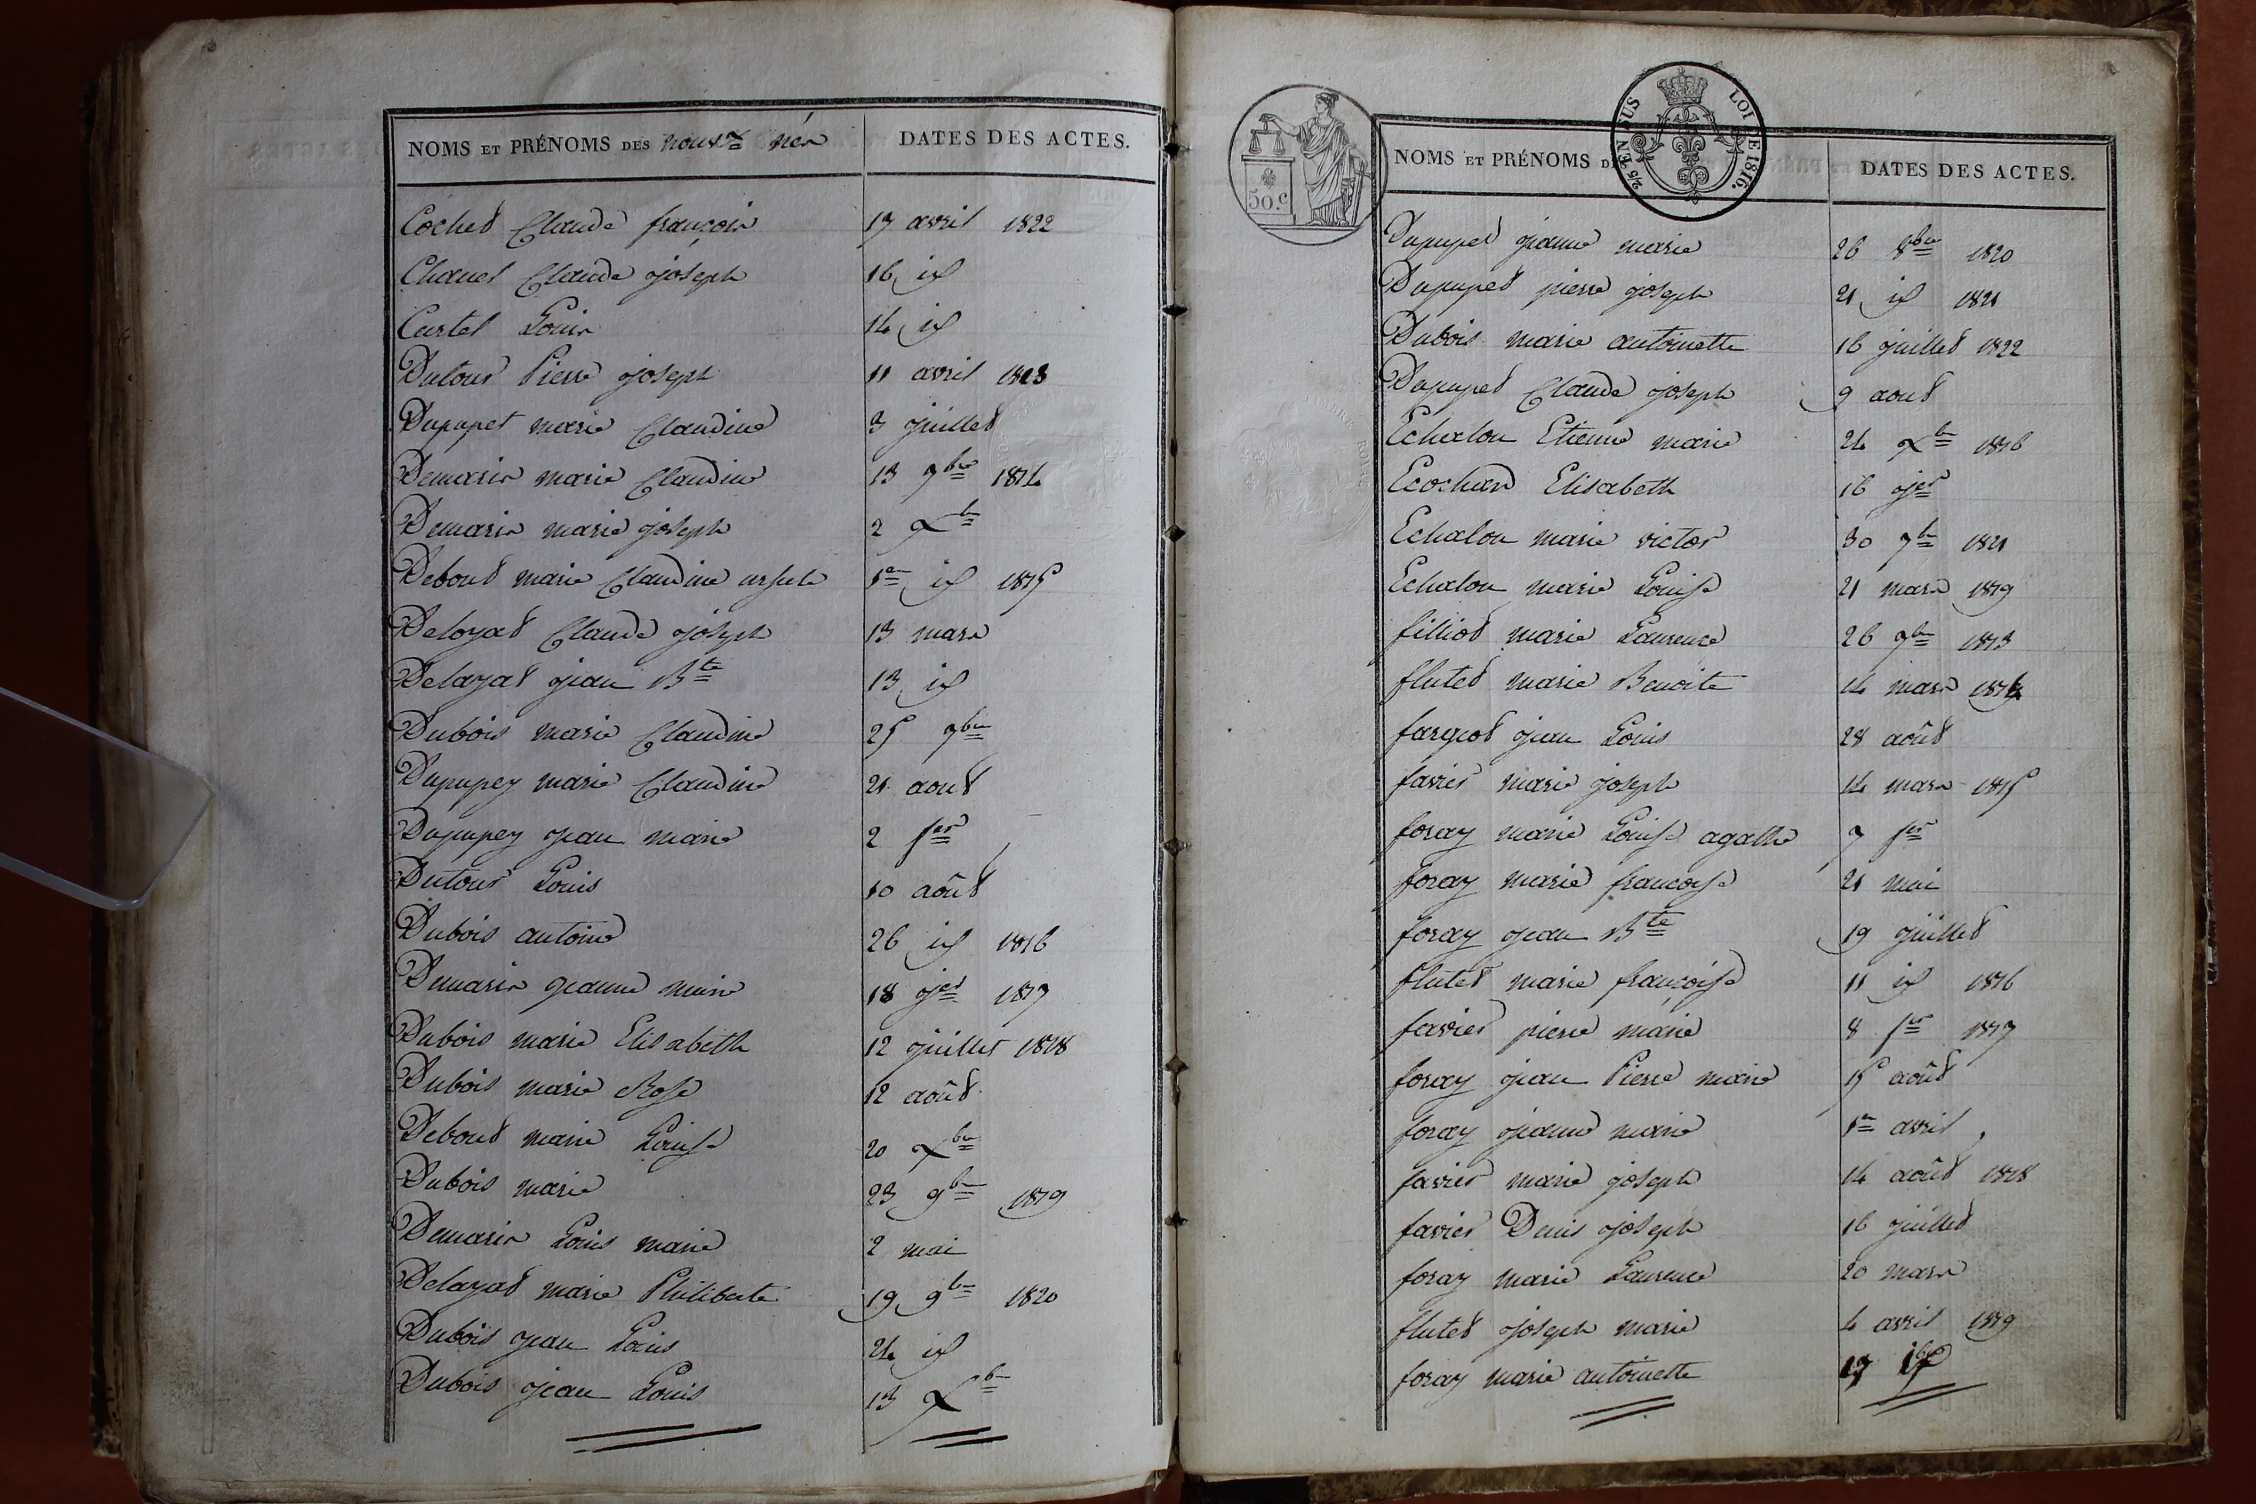 NOMS ET PRÉNOMS DES nouvx nés DATES DES ACTES.
Cochet Claude françois 17 avril 1822
Chanel Claude joseph 16 id
Curtel Louis 14 id
Dutour Pierre joseph 11 avril 1813
Dupupet marie Claudine 3 juillet
Demaris marie Claudine 13 7bre 1814
Demaris marie joseph 2 Xbre
Debout marie Claudine ursule 1er id 1815
Deloyat Claude joseph 13 mars
Delayat jean Bte 13 id
Dubois marie Claudine 25 7bre
Dupupey marie Claudine 21 aout
Dupupey jean marie 2 fer
Dutour Louis 10 août
Dubois antoine 26 id 1816
Demaris jeanne marie 18 jer 1817
Dubois marie Elisabeth 12 juillet 1818
Dubois marie Rose 12 août
Debout marie Louise 20 Xbre
Dubois marie 23 9bre 1819
Demaris Louis marie 2 mai
Delayat marie Philiberte 19 9bre 1820
Dubois jean Louis 24 id
Dubois jean Louis 13 Xbre
50 c.
2/5 EN SUS LOI DE 1816.
NOMS ET PRÉNOMS DATES DES ACTES.
Dupupet jeanne marie 26 8bre 1820
Dupupet pierre joseph 21 id 1821
Dubois marie antoinette 16 juillet 1822
Dupupet Claude joseph 9 aout
Echalon Etienne marie 24 Xbre 1816
Ecochard Elisabeth 16 jer
Echalon marie victor 30 7bre 1821
Echalon marie Louise 21 mars 1819
filliod marie Laurence 26 9bre 1813
flutet marie Benoite 14 mars 1814
fargeot jean Louis 28 août
favier marie joseph 14 mars 1815
foray marie Louise agathe 7 fer
foray marie françoise 21 mai
foray jean Bte 19 juillet
flutet marie françoise 11 id 1816
favier pierre marie 8 fer 1817
foray jean Pierre marie 15 août
foray jeanne marie 1er avril
favier marie joseph 14 août 1818
favier Denis joseph 16 juillet
foray marie Laurence 20 mars
flutet joseph marie 4 avril 1819
foray marie antoinette 17